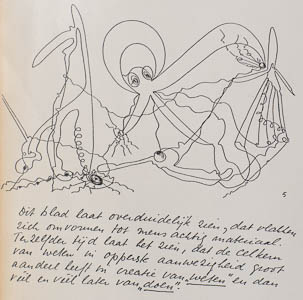 5
Dit blad laat overduidelijk zien, dat vlakken
zich omvormen tot mensachtig materiaal.
Terzelfder tijd laat het zien, dat de celkern
van weten in opperste aanwezigheid groot
aandeel heeft in creatie van „weten" en dan
viel en viel later van „doen".